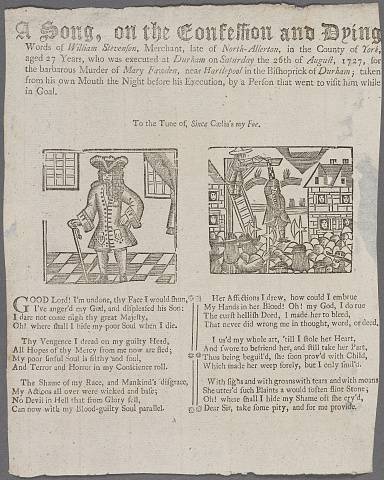 A Song, on the Confession and Dying
Words of William Stevenson, Merchant, late of North-Allerton, in the County of York,
aged 27 Years, who was executed at Durham on Saturday the 26th of August, 1727, for
the barbarous Murder of Mary Fawden, near Hartlepool in the Bishoprick of Durham; taken
from his own Mouth the Night before his Execution, by a Person that went to visit him while
in Goal.
To the Tune of, Since Cœlia's my Foe.
GOOD Lord! I'm undone, thy Face I would shun,
I've anger'd my God, and displeased his Son:
I dare not come nigh thy great Majesty,
Oh! where shall I hide my poor Soul when I die.
Thy Vengence I dread on my guilty Head,
All Hopes of thy Mercy from me now are fled;
My poor sinful Soul is filthy and foul,
And Terror and Horror in my Conscience roll.
The Shame of my Race, and Mankind's disgrace,
My Actions all over were wicked and base;
No Devil in Hell that from Glory fell,
Can now with my Blood-guilty Soul parallel.
Her Affections I drew, how could I embrue
My Hands in her Blood! Oh! my God, I do rue
The curst hellish Deed, I made her to bleed,
That never did wrong me in thought, word, or deed,
I us'd my whole art, 'till I stole her Heart,
And swore to befriend her, and still take her Part,
Thus being beguil'd, she soon prov'd with Child,
Which made her weep sorely, but I only smil'd.
With sighs and with groans with tears and with moans
She utter'd such Plaints a would soften flint Stone;
Oh! where shall I hide my Shame oft she cry'd,
Dear Sir, take some pity, and for me provide.